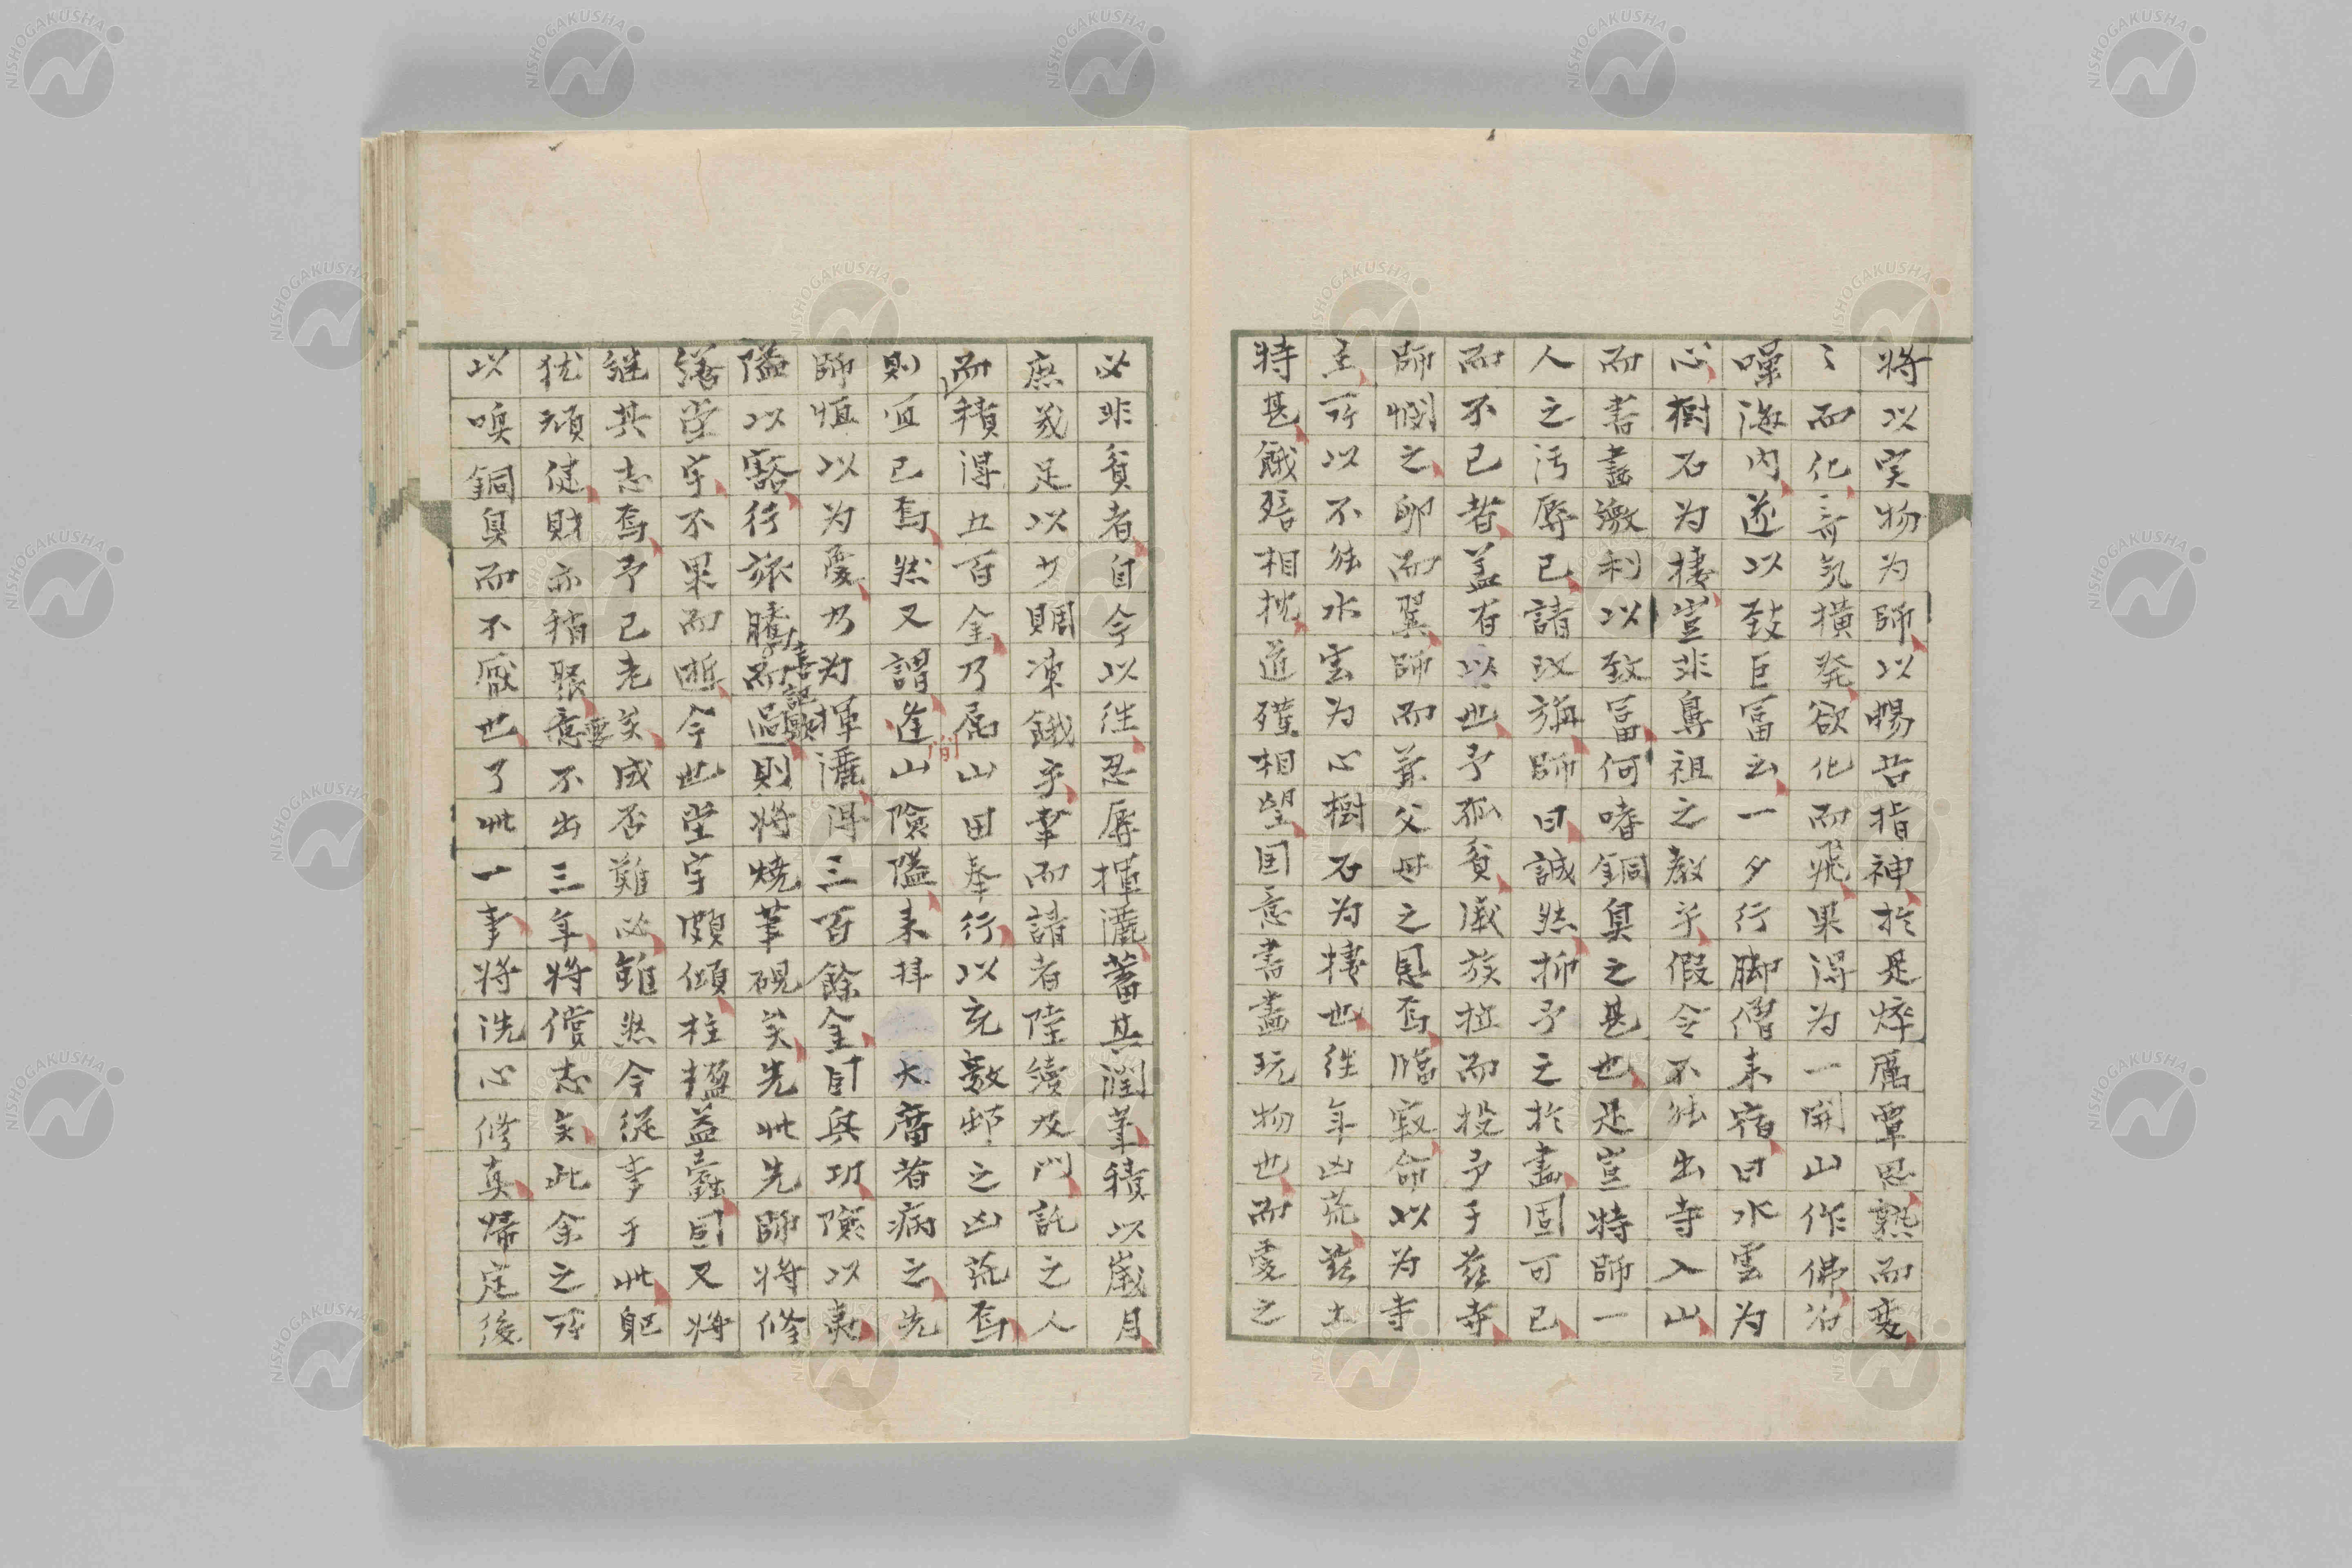 将以実物為師以惕告指神於是焠厲覃思熟而変
〻而化奇気横発欲化而飛果得為一開山作佛名
噪海内遂以致巨富云一夕行脚僧来宿曰水雲為
心樹石為棲豈非鼻祖之教乎假令不能出寺入山
而書畫激利以致冨何嗜銅臭之甚也是豈特師一
人之汚辱已諸改旃師曰誠然抑予之於畫固可已
而不已者盖有以也予孤貧咸族拉而投予于茲寺
師憫之卵而翼師而兼父母之恩焉臨寂命以為寺
主所以不能水雲為心樹石為棲也往年凶荒茲土
特甚餓殍相枕道殣相望因意書畫玩物也而愛之
必非貧者自今以往忍辱揮灑蓄其潤筆積以歳月
庶幾足以少賙凍餓乎幸而請者陸續及門託之人
而積得五百金乃属山田奉行以充數邨之凶荒焉
則宜已焉然又謂逢山險隘来拝大磨者病之先
師恒以為憂乃為揮灑得三百餘金自與功險以夷
隘以豁行旅騰而謳則将焼筆硯矣先此先師将修
喜記歌
繕堂宇不果而逝今也堂宇頗傾柱榲益蠹因又将
継其志焉予已老矣成否難必雖然今従事于此躯
猶頑健財亦稍賑意不出三年将償志矣此余之所
要
以嗅銅臭而不厭也了此一事将洗心修真帰定後